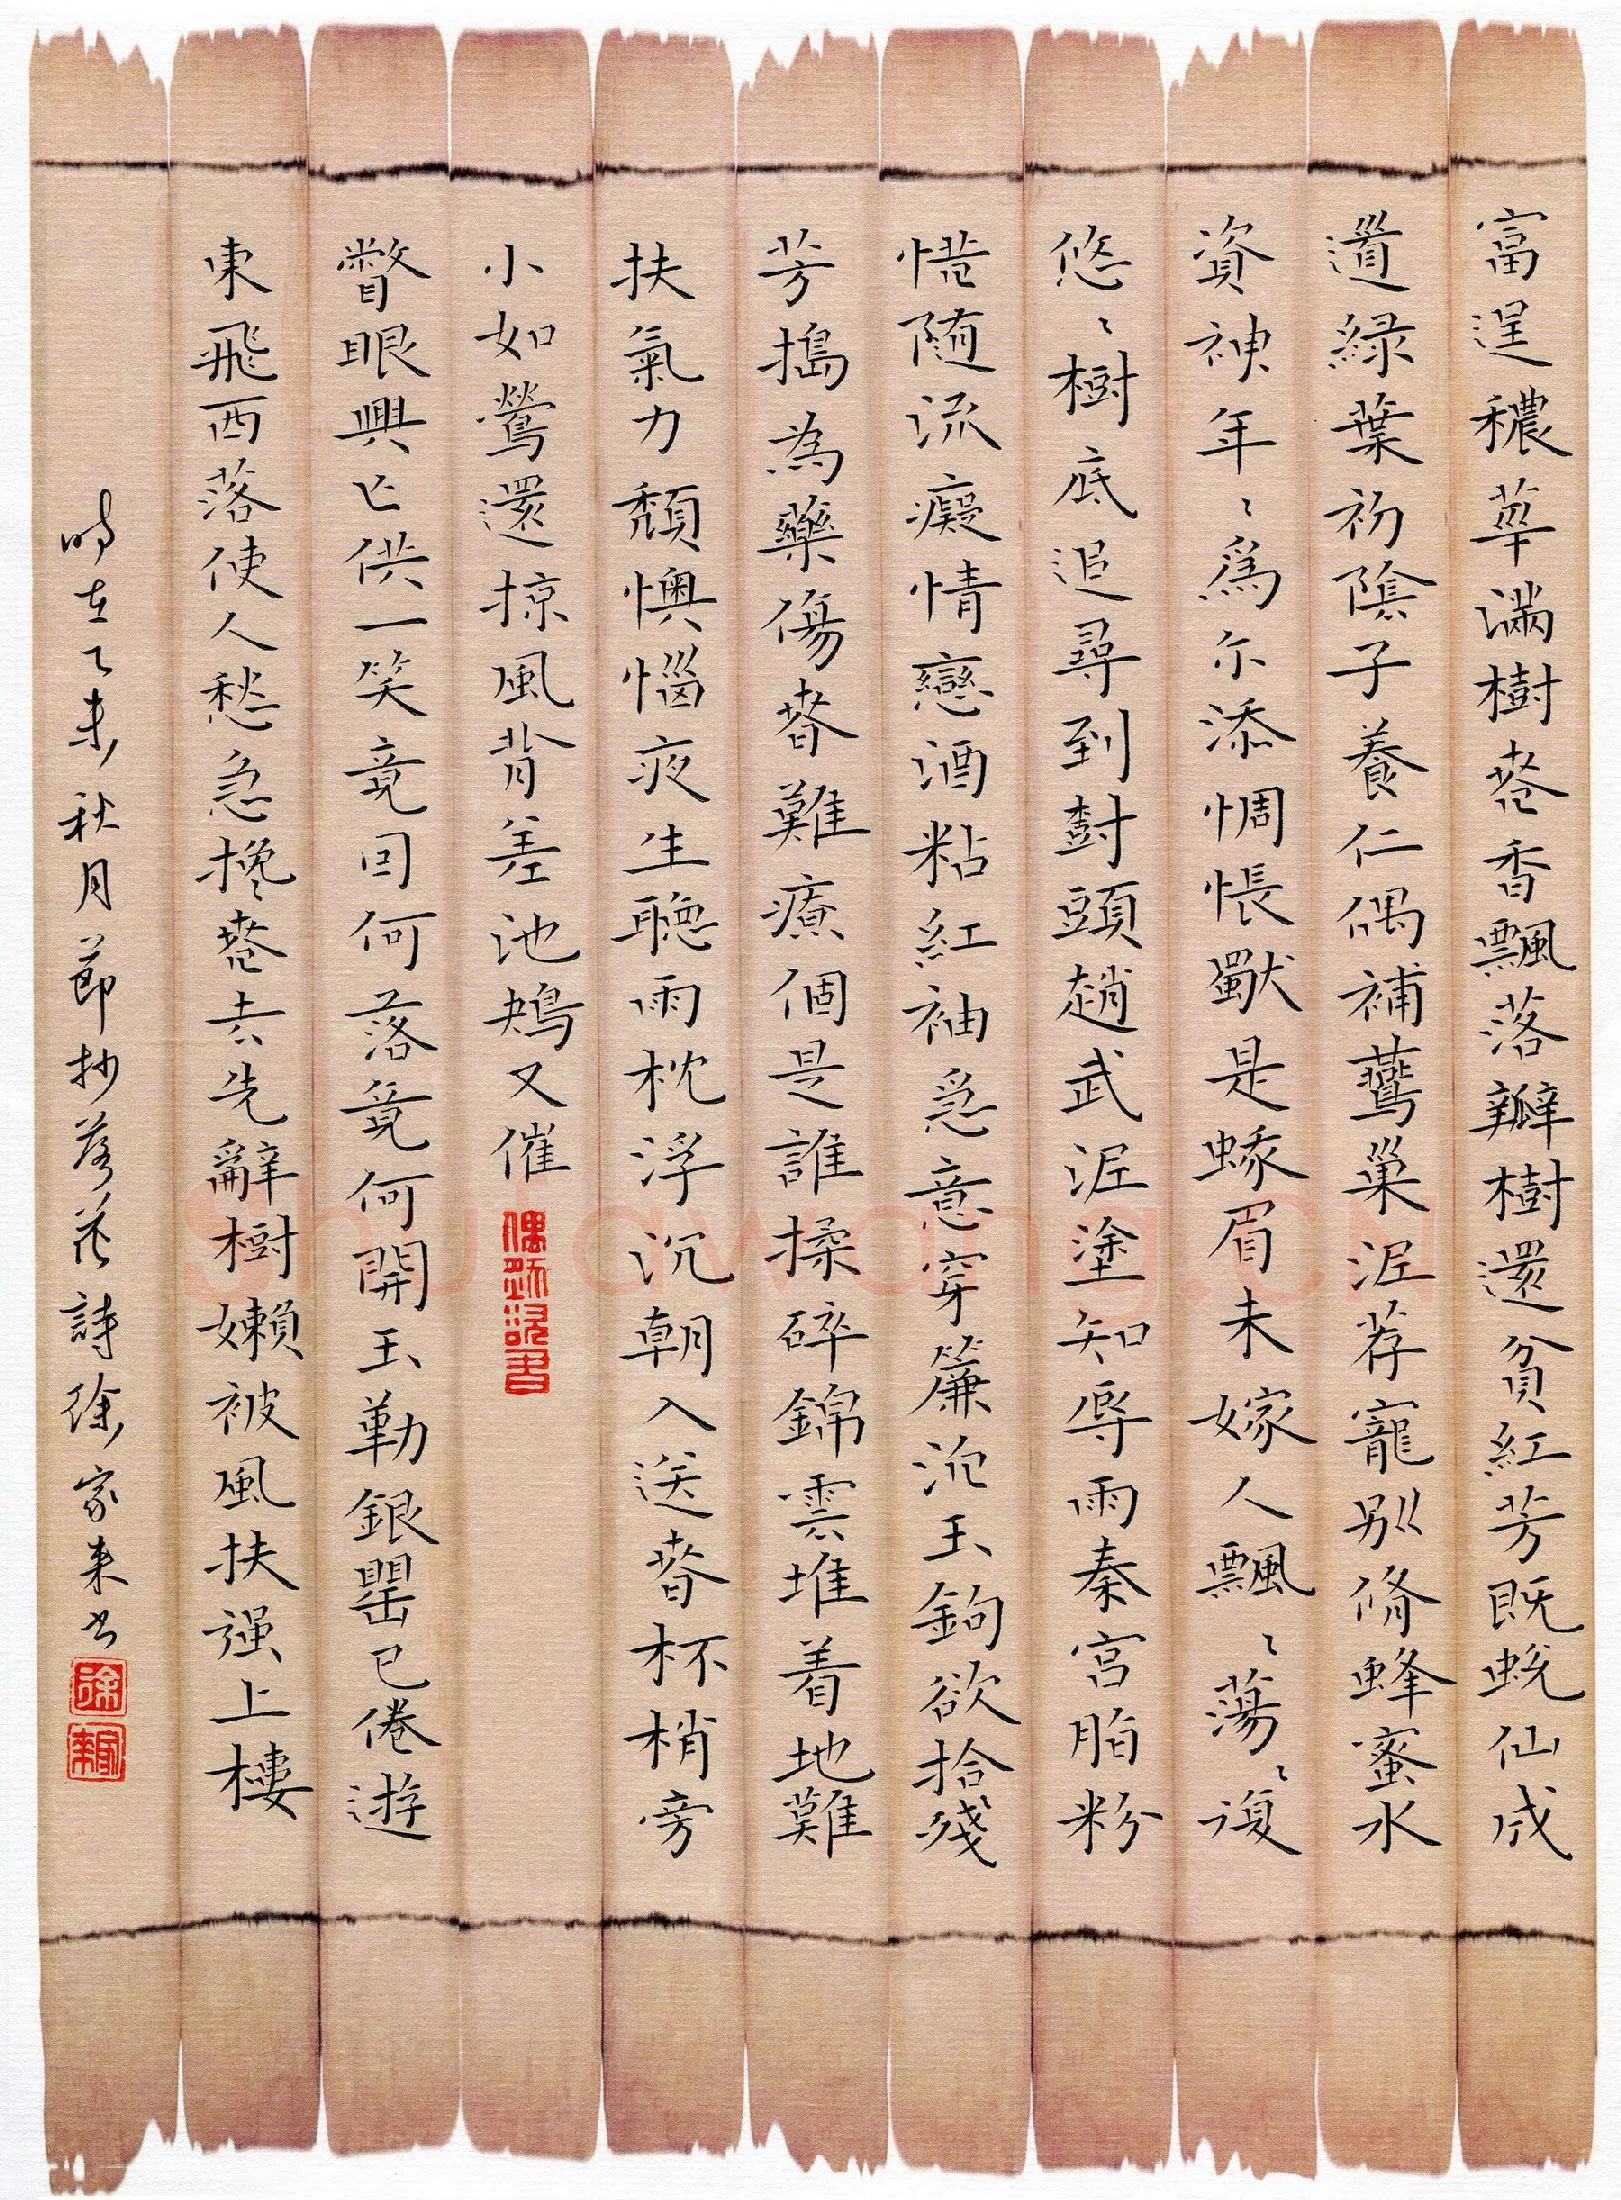 富逞穠華滿樹春香飄落瓣樹還貧紅芳既蛻仙成
道綠葉初陰子養仁偶補鷰巢泥荐寵別脩蜂蜜水
資神年〻爲尔添惆悵獸是蛾眉未嫁人飄〻蕩〻復
悠〻樹底追尋到樹頭趙武泥塗知辱雨秦宮脂粉
惜隨流癡情戀酒粘紅袖急意穿簾泥玉鉤欲拾殘
芳搗為藥傷春難療個是誰揉碎錦雲堆着地難
扶氣力頹懊惱夜生聽雨枕浮沉朝入送春杯梢旁
小如鶯還掠風背差池鴂又催
瞥眼興亡供一笑竟因何落竟何開玉勒銀罌已倦遊
東飛西落使人愁急攙春去先辭樹嬾被風扶强上樓
時在乙未秋月節抄落花詩徐家来书
徐
Shufawang.cn